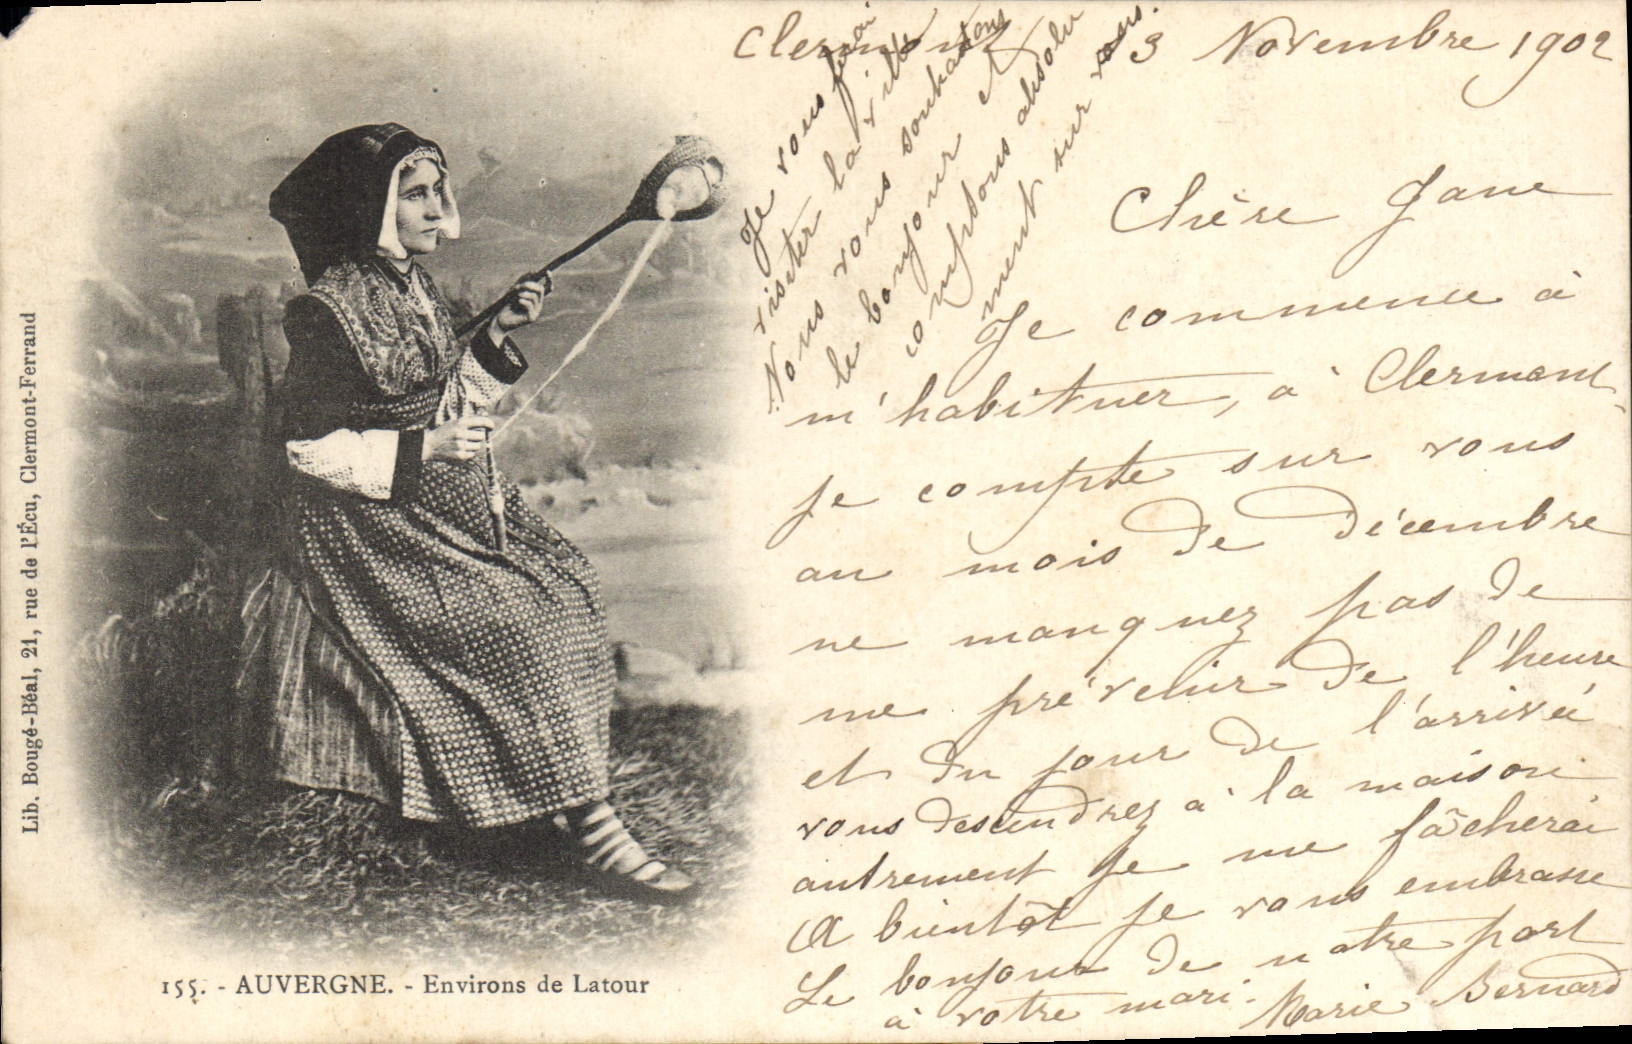 Clermont 3 Novembre 1902
Chère Jane
Je commence à
m'habituer, à Clermont,
je compte sur vous
au mois de décembre
ne manquez pas de
me prévenir de l'heure
et du jour de l'arrivée
vous descendrez à la maison
autrement je me fâcherai
A bientôt je vous embrasse
Le bonjour de notre part
à votre mari. Marie Bernard
Je vous ferai
visiter la ville
Nous vous souhaitons
le bonjour et
comptons absolu
ment sur vous.
155. - AUVERGNE. - Environs de Latour
Lib. Bougé-Béal, 21, rue de l'Écu, Clermont-Ferrand